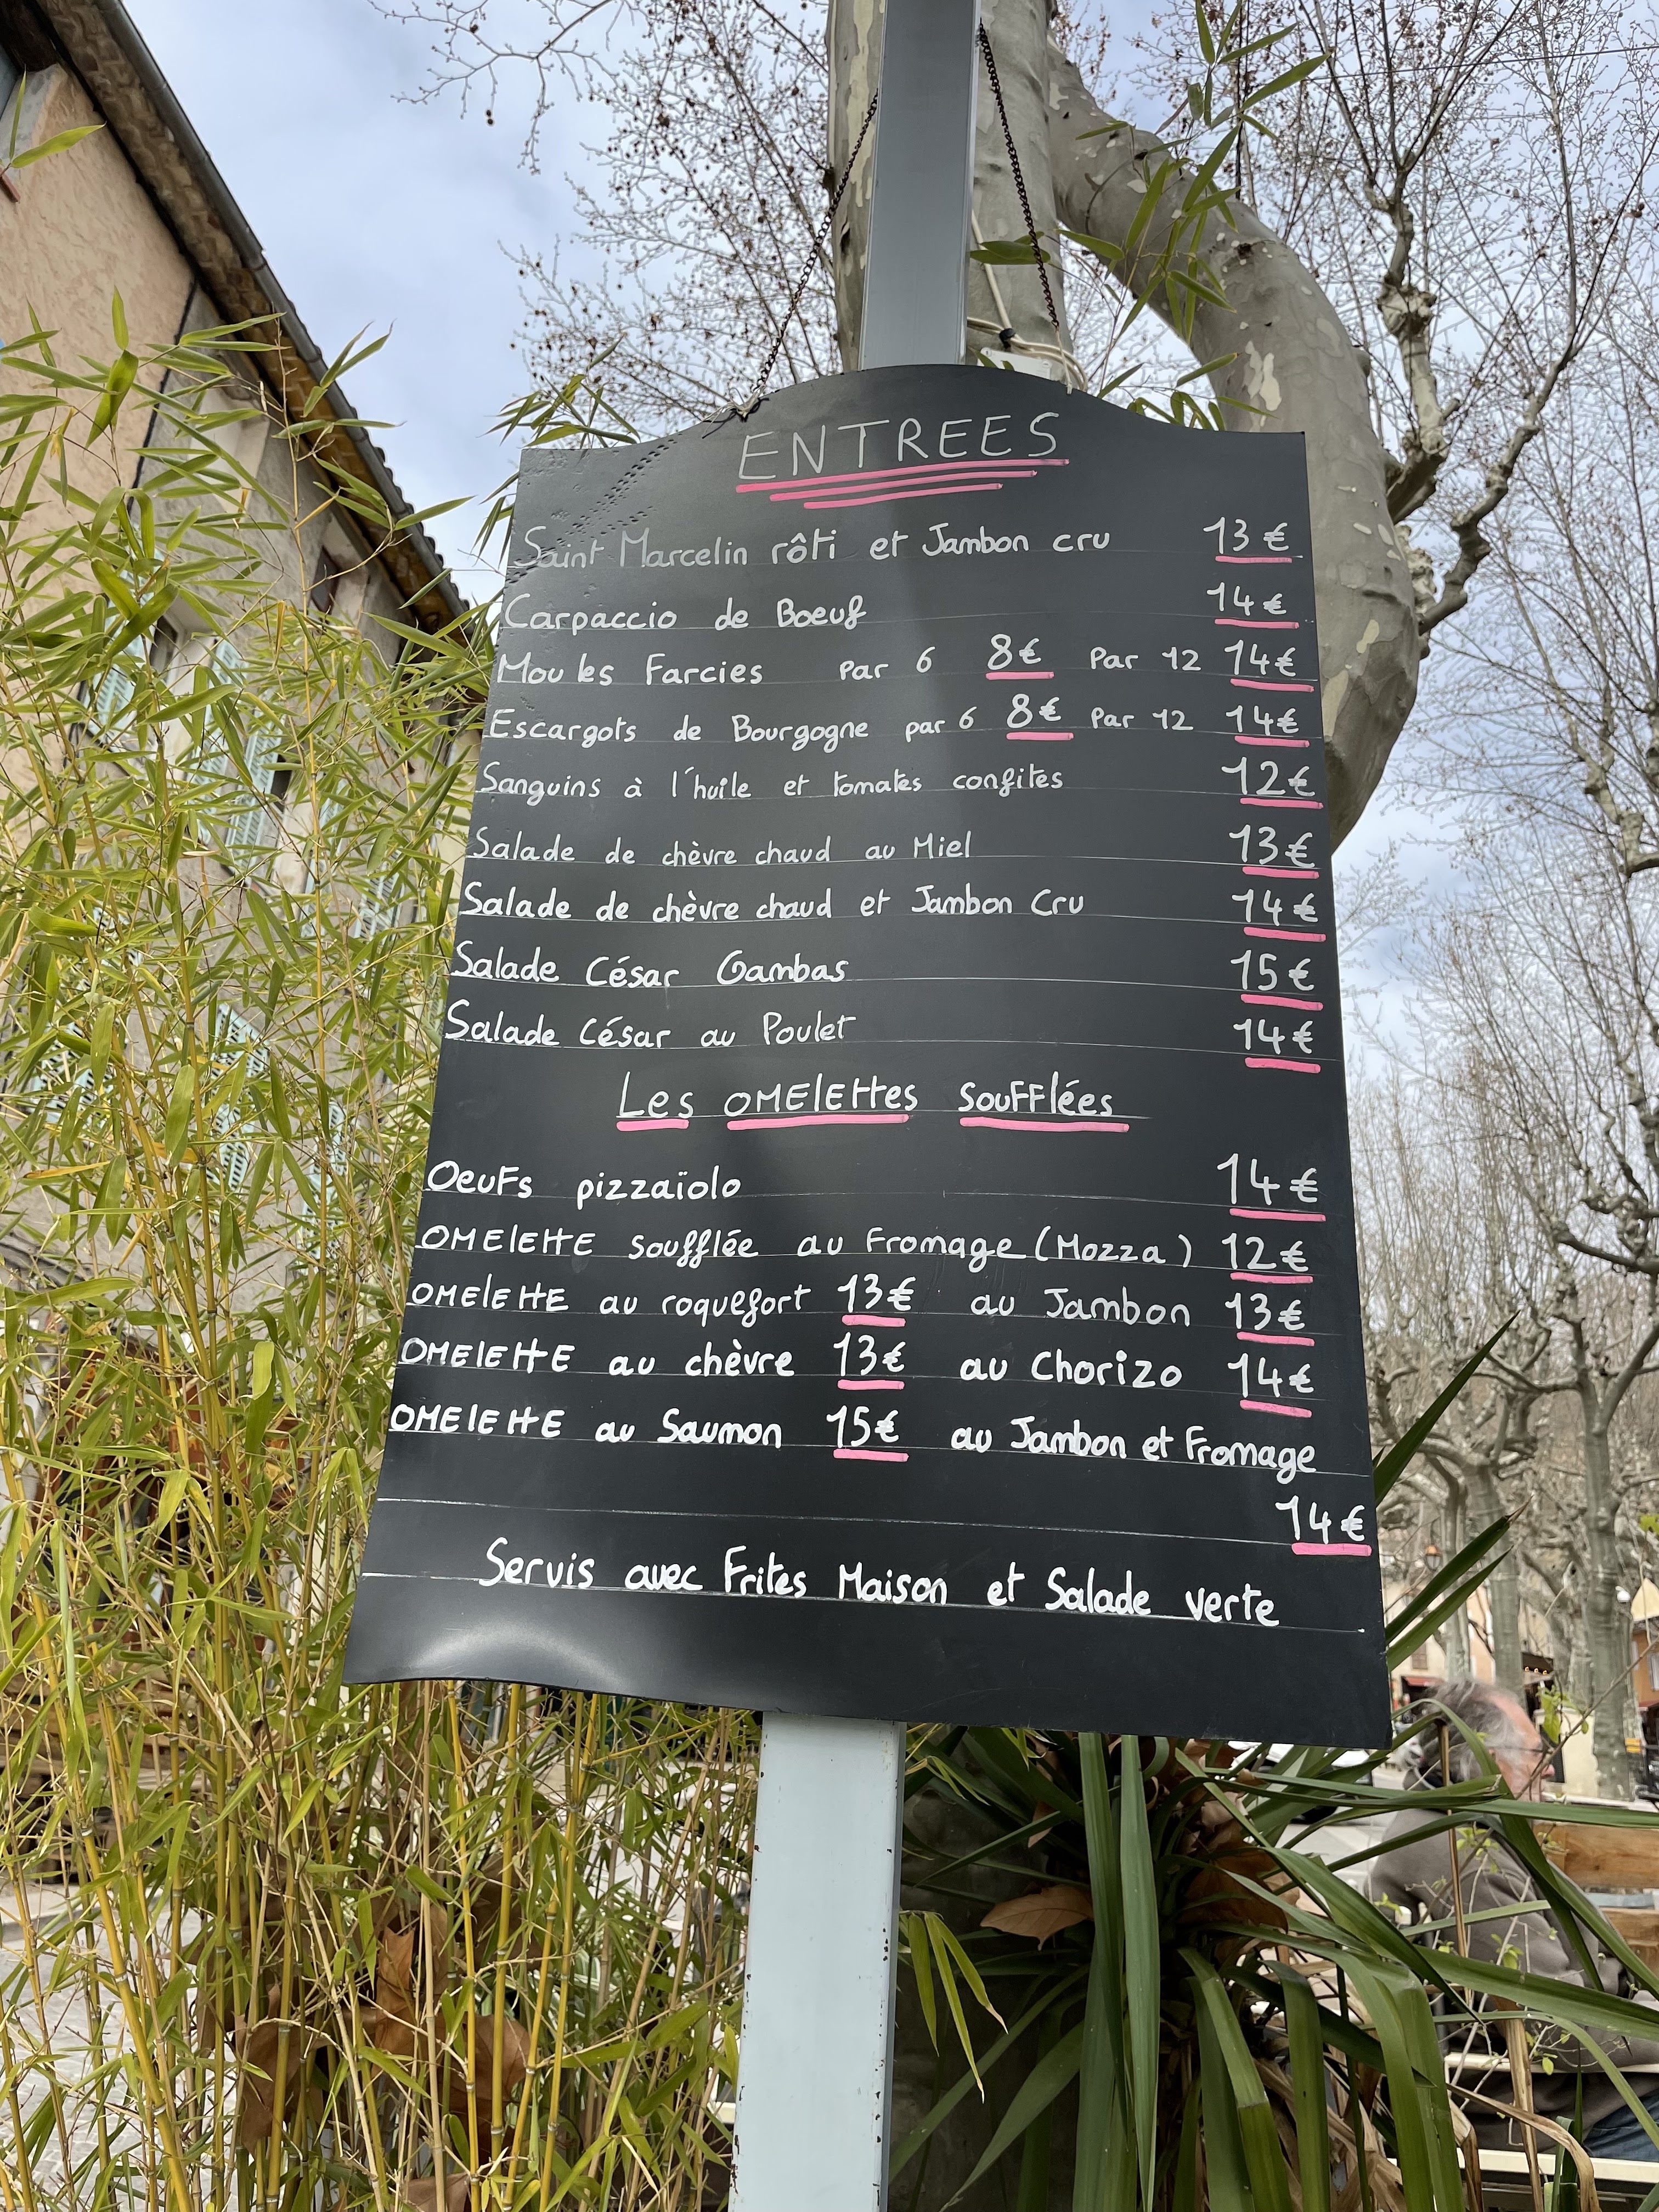 ENTREES
Saint Marcelin rôti et Jambon cru 13€
Carpaccio de Boeuf 14€
Moules Farcies par 6 8€ Par 12 14€
Escargots de Bourgogne par 6 8€ Par 12 14€
Sanguins à l'huile et tomates confites 12€
Salade de chèvre chaud au Miel 13€
Salade de chèvre chaud et Jambon Cru 14€
Salade César Gambas 15€
Salade César au Poulet 14€
Les OMElEttes SouFFlées
OeuFs pizzaïolo 14€
OMElEttE soufflée au Fromage (Mozza) 12€
OMElEttE au roquefort 13€ au Jambon 13€
OMElEttE au chèvre 13€ au Chorizo 14€
OMElEttE au Saumon 15€ au Jambon et Fromage
14€
Servis avec Frites Maison et Salade verte